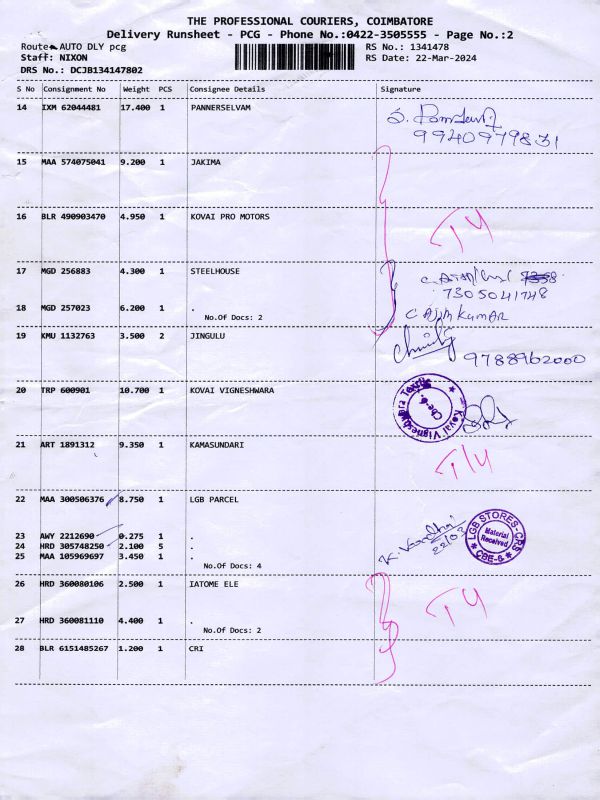 THE PROFESSIONAL COURIERS, COIMBATORE
Delivery Runsheet - PCG - Phone No.:0422-3505555 - Page No.:2
Route AUTO DLY pcg
RS No.: 1341478
Staff: NIXON
RS Date: 22-Mar-2024
DRS No.: DCJB134147802
S No Consignment No Weight PCS Consignee Details Signature
14 IXM 62044481 17.400 1 PANNERSELVAM
9940979831
15 MAA 574075041 9.200 1 JAKIMA
16 BLR 490903470 4.950 1 KOVAI PRO MOTORS
17 MGD 256883 4.300 1 STEELHOUSE
7305041748
18 MGD 257023 6.200 1 .
No.Of Docs: 2
C AJITH KUMAR
19 KMU 1132763 3.500 2 JINGULU
9788962000
20 TRP 600901 10.700 1 KOVAI VIGNESHWARA
Kovai Vigneshwara Textile
Cbe-6.
21 ART 1891312 9.350 1 KAMASUNDARI
22 MAA 300506376 8.750 1 LGB PARCEL
23 AWY 2212690 0.275 1 .
24 HRD 305748250 2.100 5 .
25 MAA 105969697 3.450 1 .
No.Of Docs: 4
22/03
LGB STORES-CPS
Material
Received
CBE-6
26 HRD 360080106 2.500 1 IATOME ELE
27 HRD 360081110 4.400 1 .
No.Of Docs: 2
28 BLR 6151485267 1.200 1 CRI